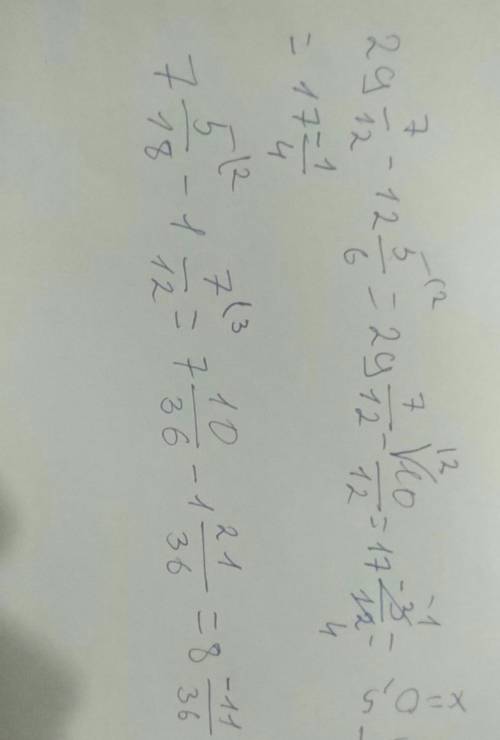 29 7/12 - 12 5/6 \2 = 29 7/12 - 12 10/12 = 17 -3/12 -1/4 =
= 17 -1/4
7 5/18 \2 - 1 7/12 \3 = 7 10/36 - 1 21/36 = 8 -11/36
x=0,5